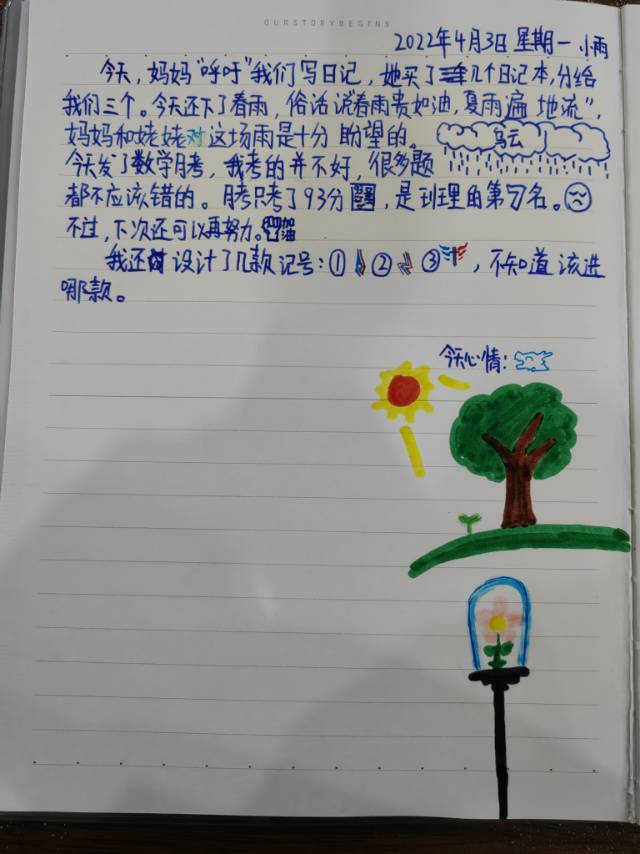 OURSTORYBEGINS
2022年4月3日 星期一 小雨
今天，妈妈“呼吁”我们写日记，她买了几个日记本，分给
我们三个。今天还下了春雨，俗话说春雨贵如油，夏雨遍地流”，
妈妈和姥姥对这场雨是十分盼望的。
乌云
今天发了数学月考，我考的并不好，很多题
都不应该错的。月考只考了93分，是班理的第7名。
不过，下次还可以再努力。加油
我还设计了几款记号：① ② ③，不知道该选
哪款。
今天心情：